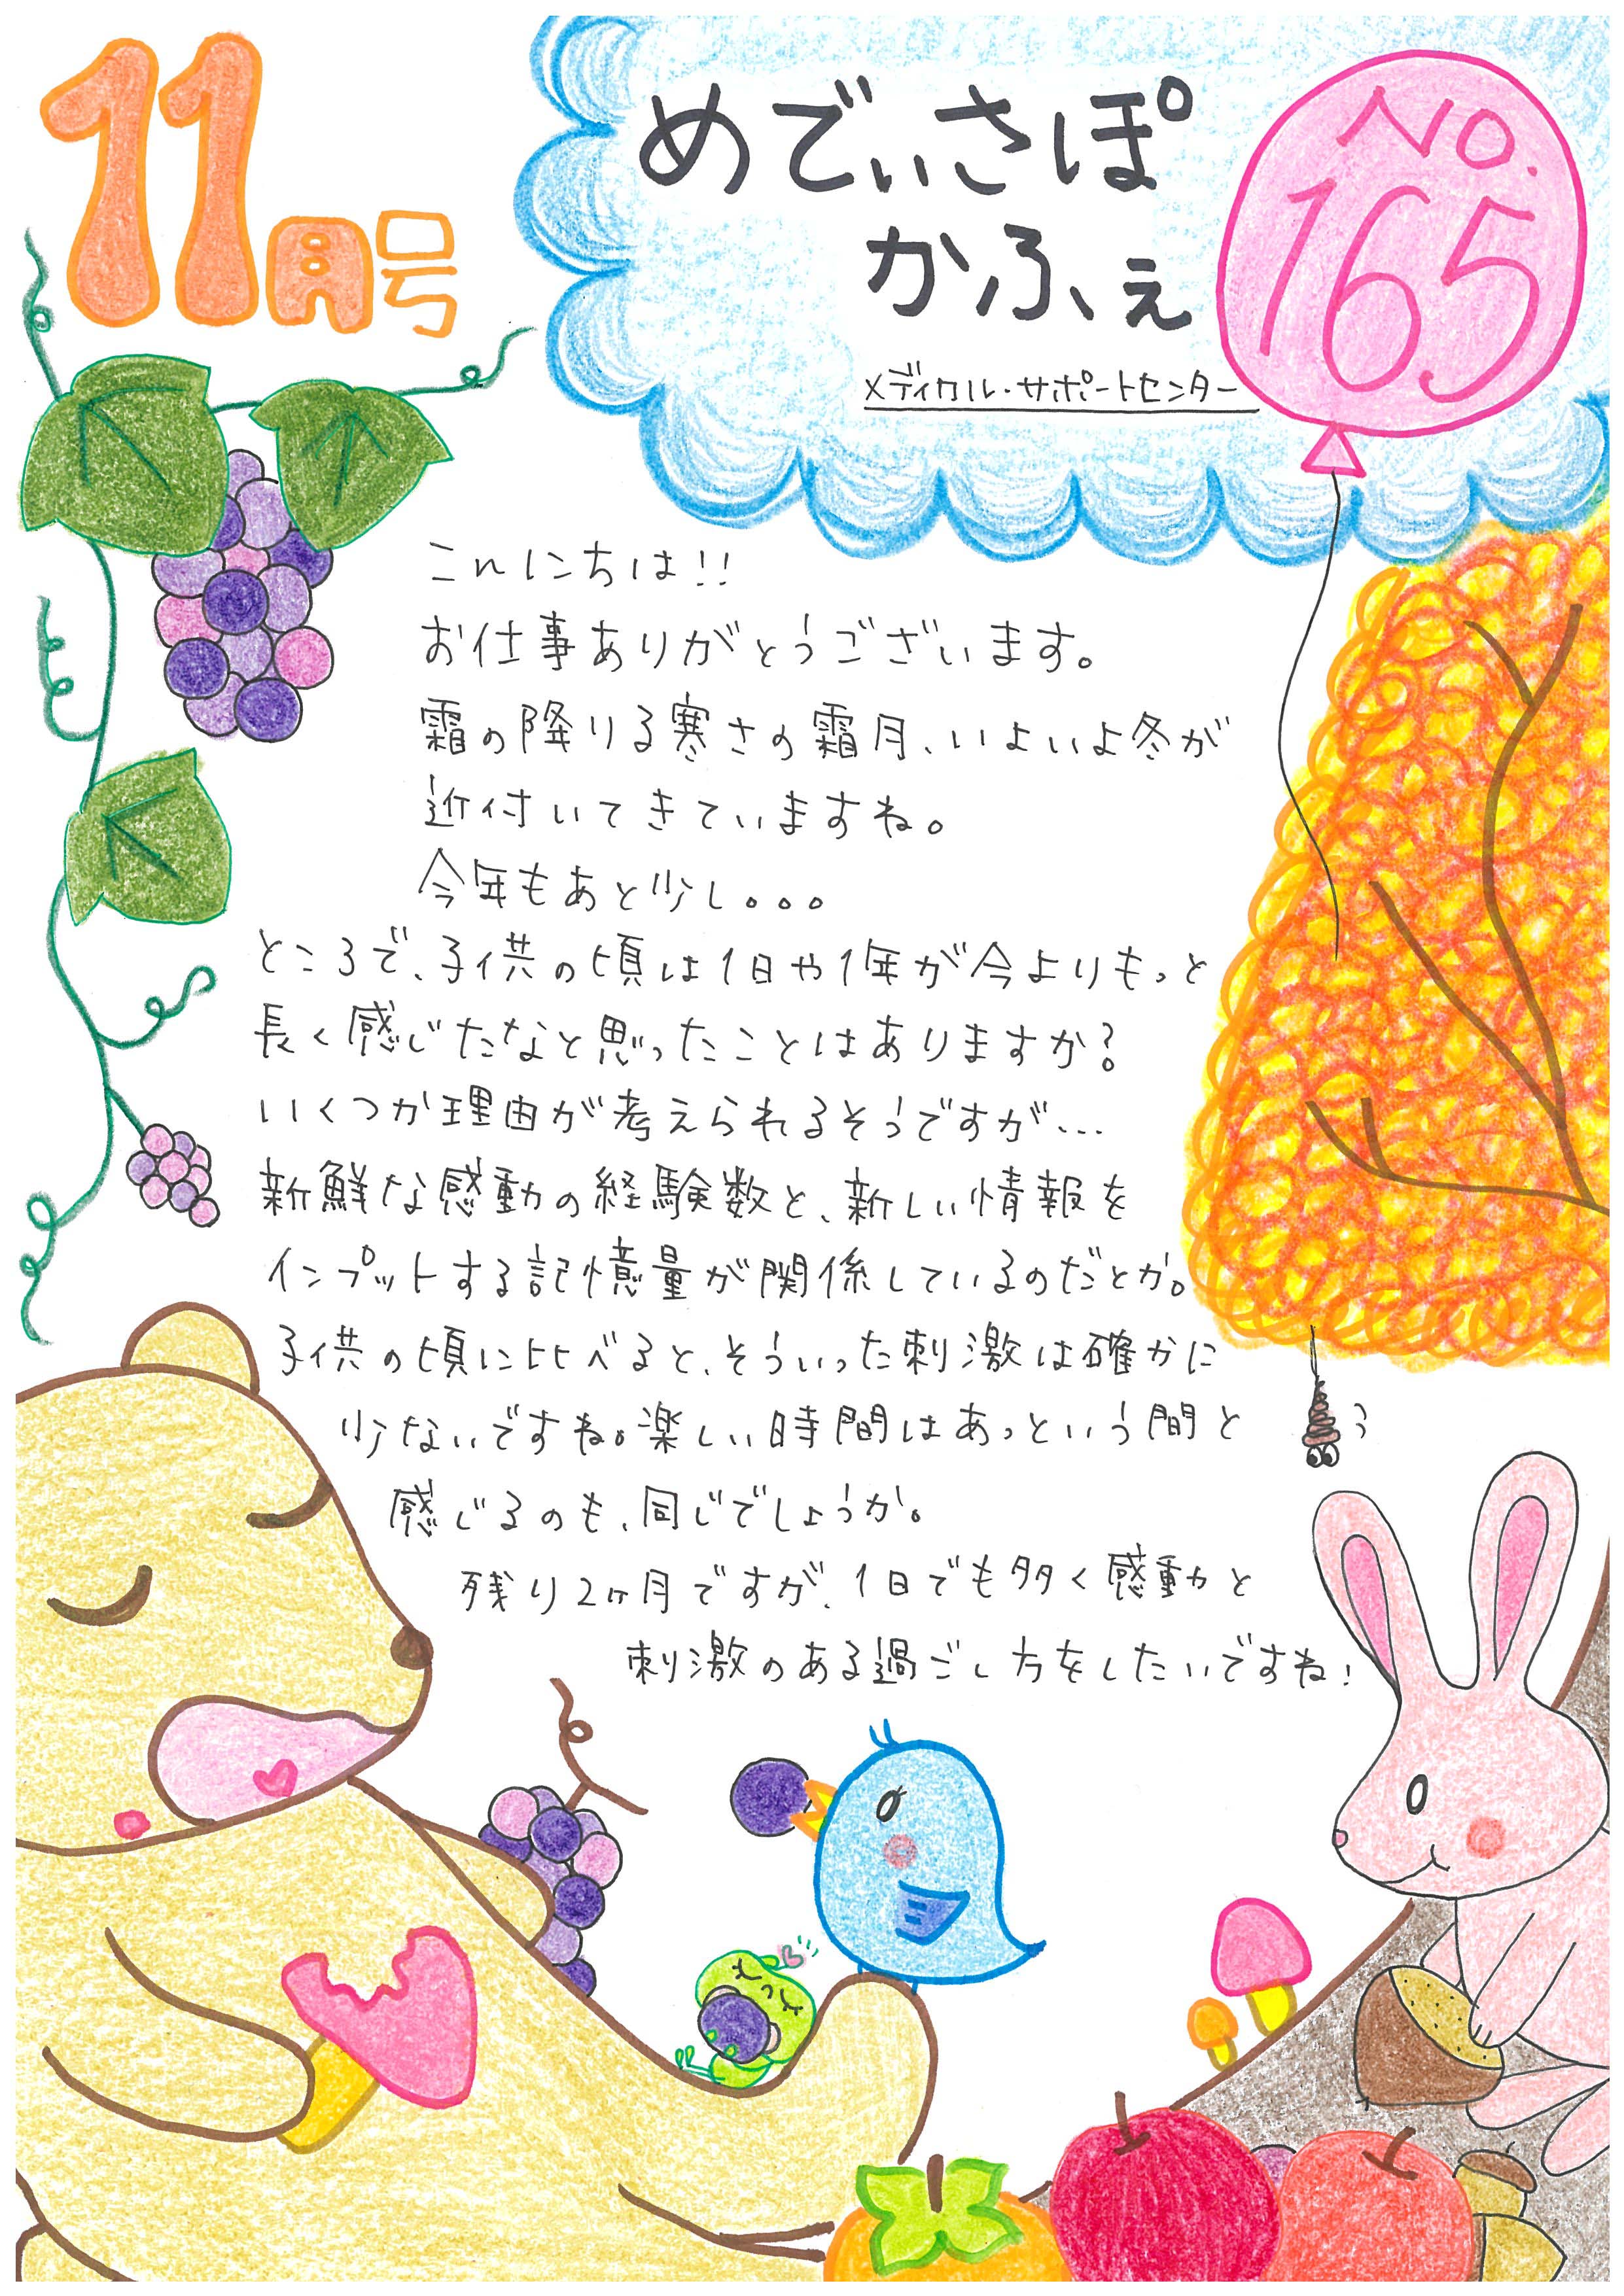 11月号
めでぃさぽ
かふぇ
No.
165
メディカル・サポートセンター
こんにちは!!
お仕事ありがとうございます。
霜の降りる寒さの霜月、いよいよ冬が
近付いてきていますね。
今年もあと少し。。。
ところで、子供の頃は1日や1年が今よりもっと
長く感じたなと思ったことはありますか?
いくつか理由が考えられるそうですが…
新鮮な感動の経験数と、新しい情報を
インプットする記憶量が関係しているのだとか。
子供の頃に比べると、そういった刺激は確かに
少ないですね。楽しい時間はあっという間と
感じるのも、同じでしょうか。
残り2ヶ月ですが、1日でも多く感動と
刺激のある過ごし方をしたいですね!